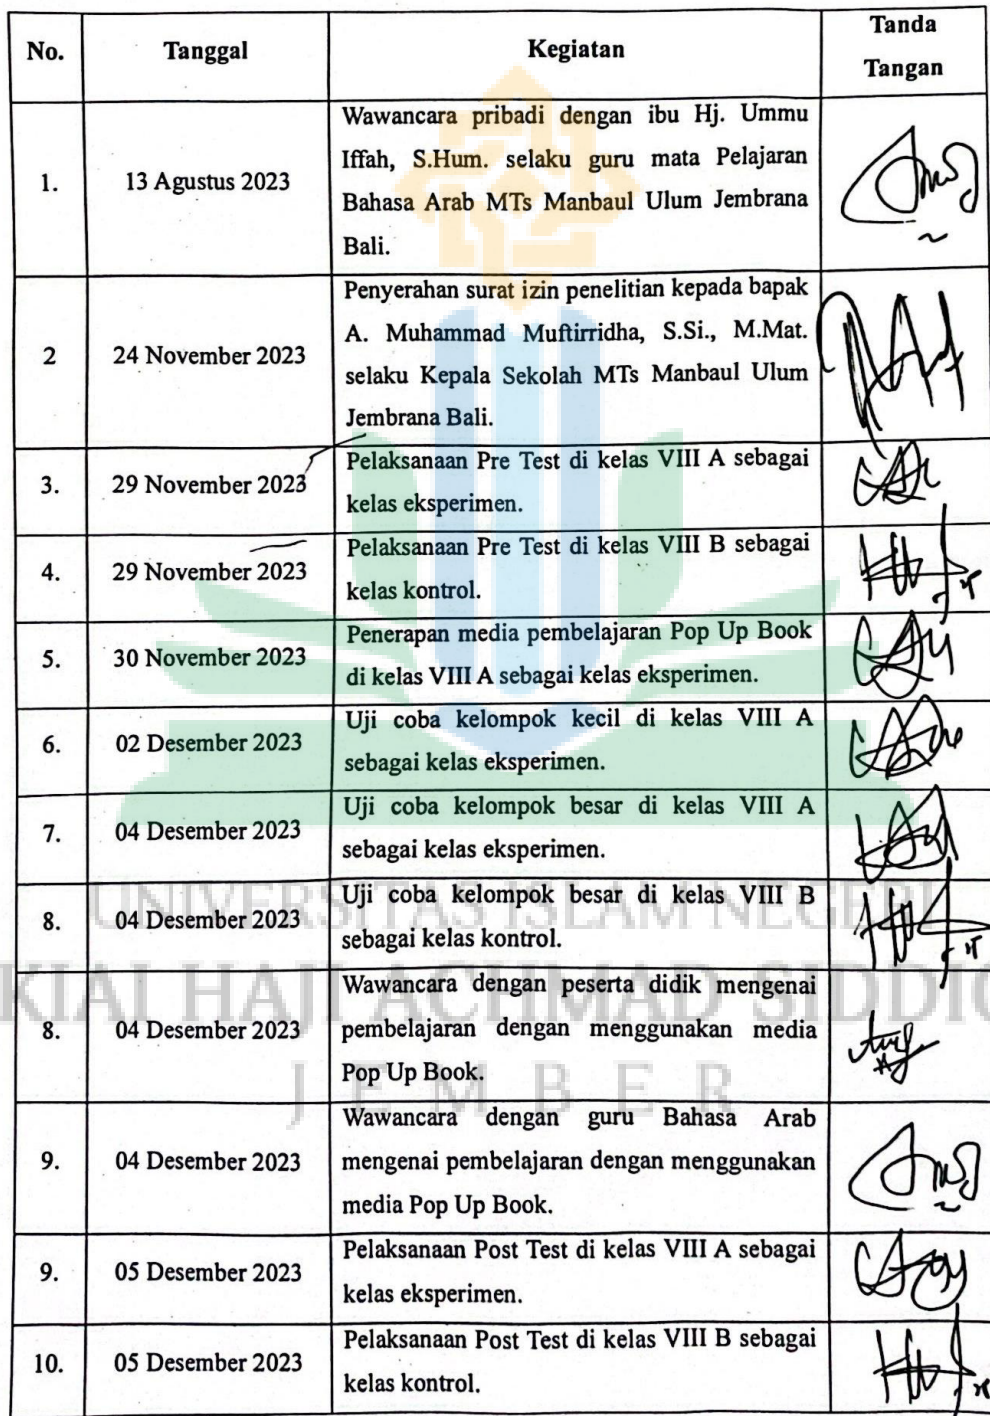 No. Tanggal Kegiatan Tanda
Tangan
1. 13 Agustus 2023 Wawancara pribadi dengan ibu Hj. Ummu
Iffah, S.Hum. selaku guru mata Pelajaran
Bahasa Arab MTs Manbaul Ulum Jembrana
Bali.
2 24 November 2023 Penyerahan surat izin penelitian kepada bapak
A. Muhammad Muftirridha, S.Si., M.Mat.
selaku Kepala Sekolah MTs Manbaul Ulum
Jembrana Bali.
3. 29 November 2023 Pelaksanaan Pre Test di kelas VIII A sebagai
kelas eksperimen.
4. 29 November 2023 Pelaksanaan Pre Test di kelas VIII B sebagai
kelas kontrol.
5. 30 November 2023 Penerapan media pembelajaran Pop Up Book
di kelas VIII A sebagai kelas eksperimen.
6. 02 Desember 2023 Uji coba kelompok kecil di kelas VIII A
sebagai kelas eksperimen.
7. 04 Desember 2023 Uji coba kelompok besar di kelas VIII A
sebagai kelas eksperimen.
8. 04 Desember 2023 Uji coba kelompok besar di kelas VIII B
sebagai kelas kontrol.
8. 04 Desember 2023 Wawancara dengan peserta didik mengenai
pembelajaran dengan menggunakan media
Pop Up Book.
9. 04 Desember 2023 Wawancara dengan guru Bahasa Arab
mengenai pembelajaran dengan menggunakan
media Pop Up Book.
9. 05 Desember 2023 Pelaksanaan Post Test di kelas VIII A sebagai
kelas eksperimen.
10. 05 Desember 2023 Pelaksanaan Post Test di kelas VIII B sebagai
kelas kontrol.
UNIVERSITAS ISLAM NEGERI
KIAI HAJI ACHMAD SIDDIQ
JEMBER